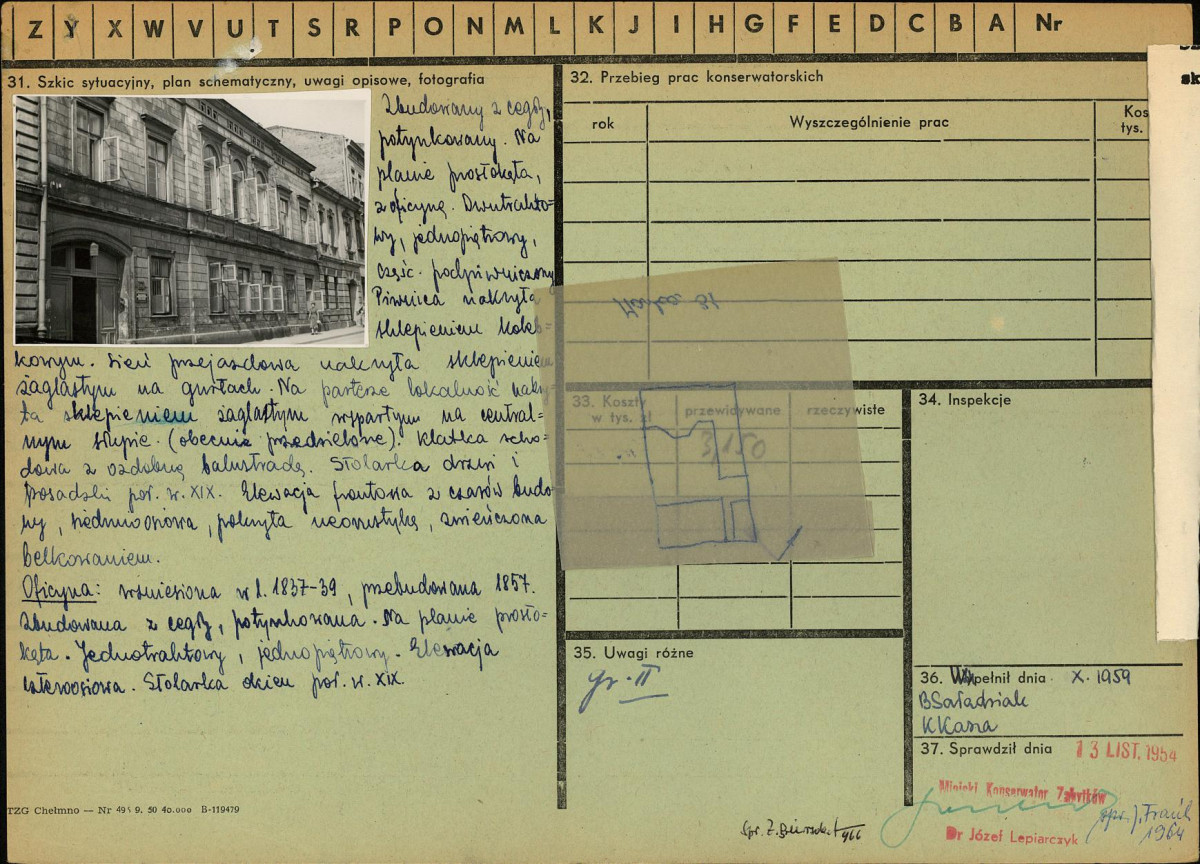 Z Y X W V U T S R P O N M L K J I H G F E D C B A Nr
31. Szkic sytuacyjny, plan schematyczny, uwagi opisowe, fotografia
Zbudowany z cegły,
potynkowany. Na
planie prostokąta,
z oficyną. Dwutrakto-
wy, jednopiętrowy,
część. podpiwniczony
Piwnica nakryta
sklepieniem koleb-
kowym. Sień przejazdowa nakryta sklepieniem
żaglastym na gurtach. Na parterze lokalność nakry-
ta sklepieniem żaglastym wspartym na central-
nym słupie. (obecnie przedzielone). Klatka scho-
dowa z ozdobną balustradą. Stolarka drzwi i
posadzki poł. w. XIX. Elewacja frontowa z czasów budo-
wy, siedmioosiowa, pokryta neorustyką, zwieńczona
belkowaniem.
Oficyna: wzniesiona w l. 1837-39, przebudowana 1857.
Zbudowana z cegły, potynkowana. Na planie prosto-
kąta. Jednotraktowy, jednopiętrowy. Elewacja
czteroosiowa. Stolarka okien poł. w. XIX.
TZG Chełmno — Nr 495 9. 50 40.000 B-119479
32. Przebieg prac konserwatorskich
rok Wyszczególnienie prac Kos
tys.
sk
Marka 81
33. Koszty
w tys. zł przewidywane rzeczywiste
3,150
34. Inspekcje
35. Uwagi różne
gr. II
36. Wypełnił dnia X. 1959
BSaładziak
KKasza
37. Sprawdził dnia 13 LIST. 1954
Miejski Konserwator Zabytków
Dr Józef Lepiarczyk
Spr. Z. 1966
spr. J. Frank
1964